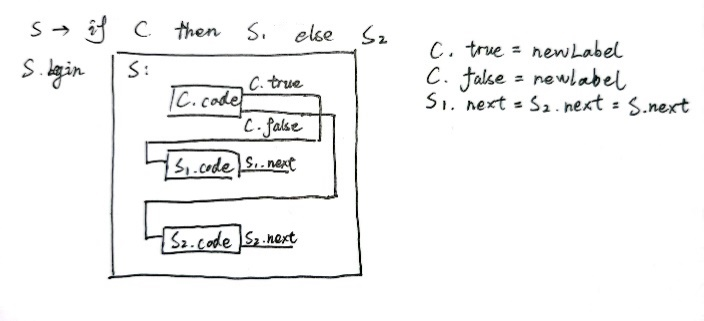 S → if C then S₁ else S₂
S.begin
S:
C.true
C.code
C.false
S₁.code S₁.next
S₂.code S₂.next
C. true = newLabel
C. false = newlabel
S₁. next = S₂. next = S.next